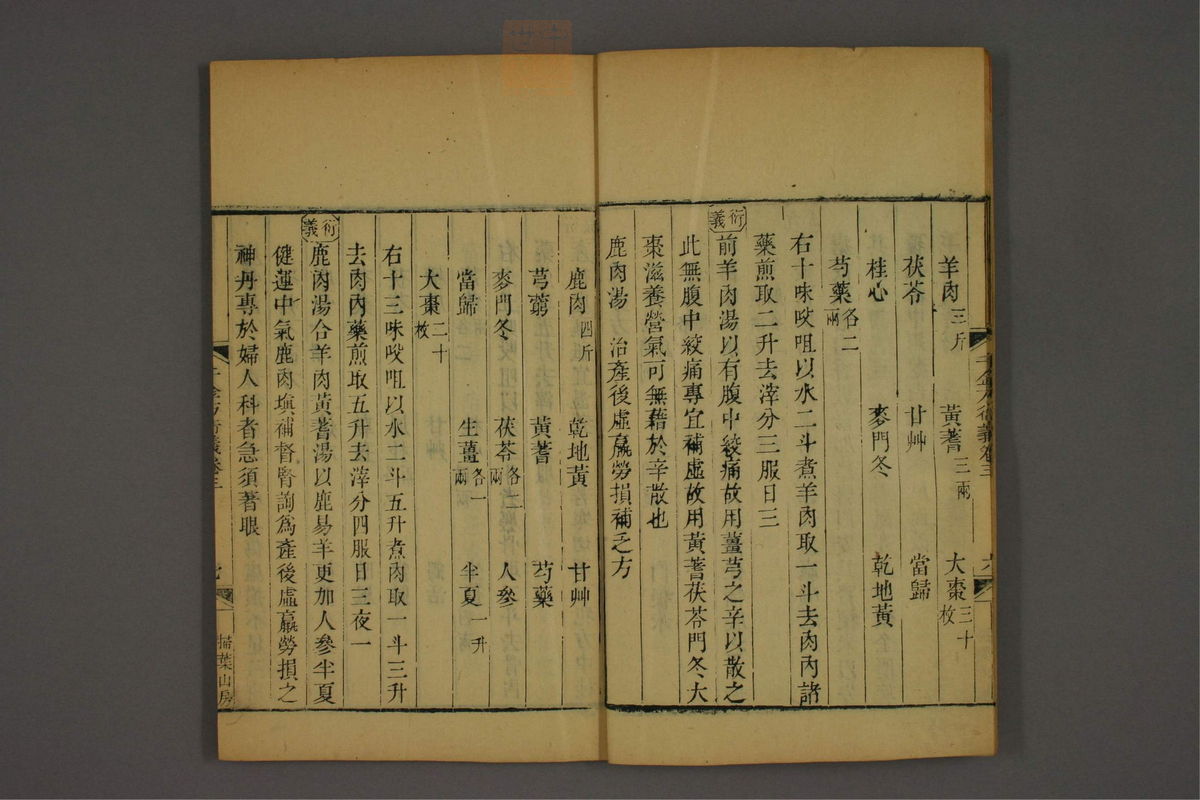 羊肉三斤 黃蓍三兩 大棗三十枚
茯苓 甘艸 當歸
桂心 麥門冬 乾地黃
芍藥各二兩
右十味㕮咀以水二斗煮羊肉取一斗去肉內諸
藥煎取二升去滓分三服日三
衍義
前羊肉湯以有腹中絞痛故用薑芎之辛以散之
此無腹中絞痛專宜補虛故用黃蓍茯苓門冬大
棗滋養營氣可無藉於辛散也
鹿肉湯 治產後虛羸勞損補乏方
鹿肉四斤 乾地黃 甘艸
芎藭 黃蓍 芍藥
麥門冬 茯苓各二兩 人參
當歸 生薑各一兩 半夏一升
大棗二十枚
右十三味㕮咀以水二斗五升煮肉取一斗三升
去肉內藥煎取五升去滓分四服日三夜一
衍義
鹿肉湯合羊肉黃蓍湯以鹿易羊更加人參半夏
健運中氣鹿肉填補督腎詢為產後虛羸勞損之
神丹專於婦人科者急須著眼
掃葉山房